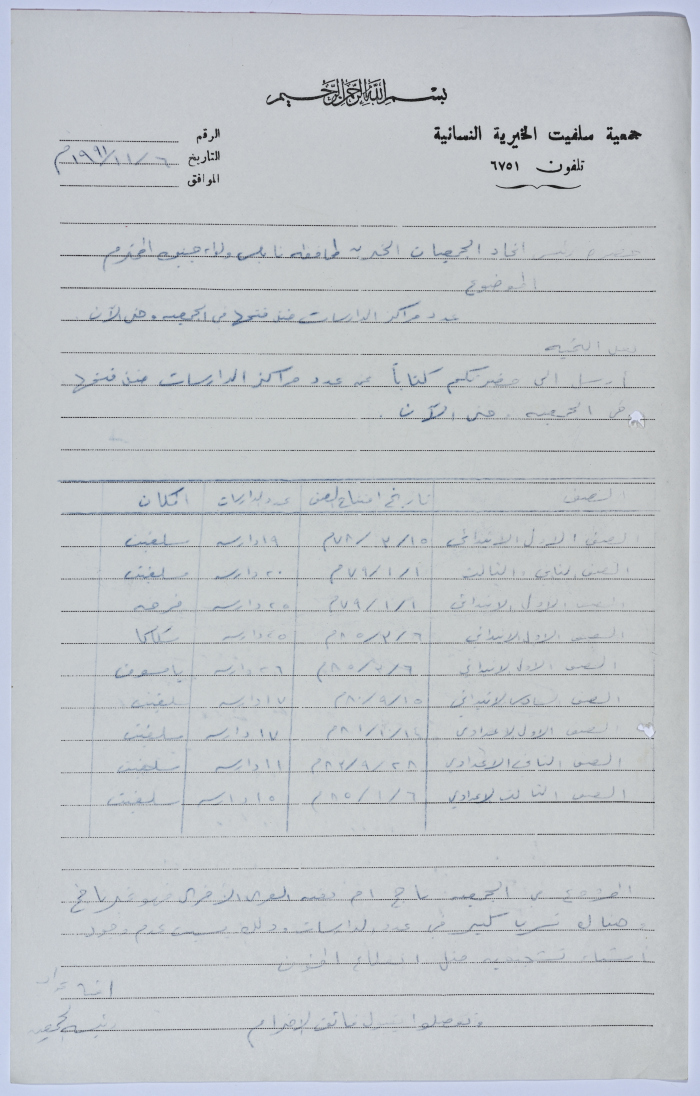 بسم الله الرحمن الرحيم
جمعية سلفيت الخيرية النسائية
تلفون ٦٧٥١
الرقم
التاريخ ٦ / ١١ / ١٩٩١م
الموافق
حضرة رئيس اتحاد الجمعيات الخيرية لمحافظة نابلس ولواء جنين المحترم
الموضوع
عدد مراكز الدارسات منذ فتحها في الجمعية وحتى الآن
بعد التحية
أرسل الى حضرتكم كتاباً عن عدد مراكز الدارسات منذ فتحها
في الجمعية وحتى الآن .
الصف تاريخ افتتاح الصف عدد الدارسات المكان
الصف الاول الابتدائي ١٥ / ٣ / ٧٨م ١٩ دارسة سلفيت
الصف الثاني والثالث ١ / ١ / ٧٩م ٢٠ دارسة سلفيت
الصف الاول الابتدائي ١ / ١ / ٧٩م ٢٥ دارسة فرخه
الصف الاول الابتدائي ٦ / ٣ / ٨٥م ٢٥ دارسة
الصف الاول الابتدائي ٦ / ٣ / ٨٥م ٢٦ دارسة ياسوف
الصف السادس الابتدائي ١٥ / ٩ / ٨٠م ١٧ دارسة سلفيت
الصف الاول الاعدادي ٨١م ١٧ دارسة سلفيت
الصف الثاني الاعدادي ٢٨ / ٩ / ٨٦م ١١ دارسة سلفيت
الصف الثالث الاعدادي ٦ / ١ / ٨٥م ١٥ دارسة سلفيت
في الجمعية ناجح اما بقية القرى الاخرى فهو غير ناجح
وهناك تسرب كبير في عدد الدارسات وذلك بسبب عدم وجود
أشياء تشجيعية مثل
وتفضلوا بقبول فائق الاحترام
رئيسة الجمعية